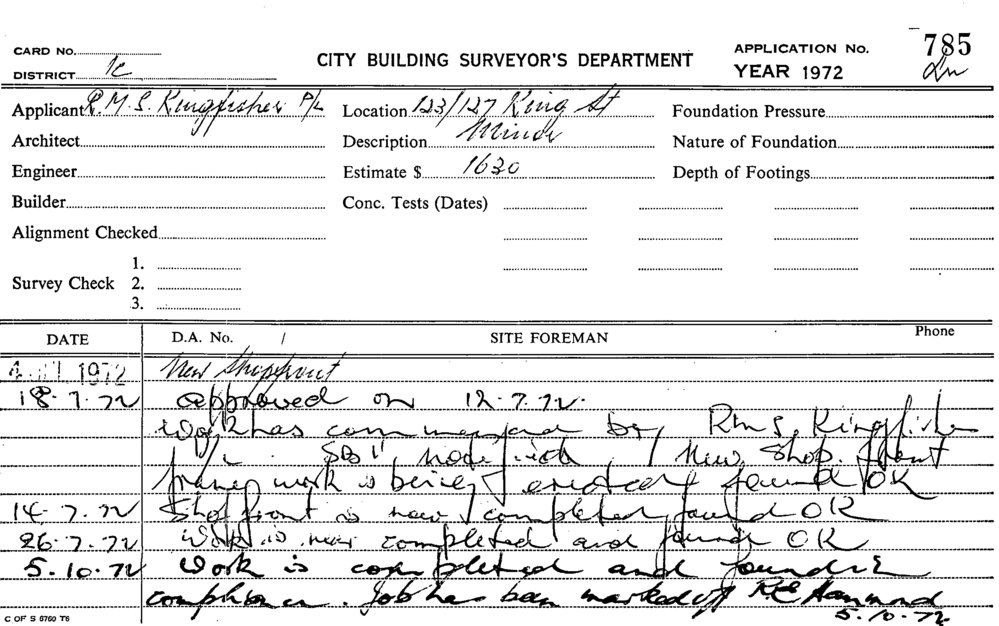 CARD No.
DISTRICT 1c
CITY BUILDING SURVEYOR'S DEPARTMENT
APPLICATION No. 785
YEAR 1972
Applicant R.M.S. Kingfisher P/L
Location 123/127 King St
Foundation Pressure
Architect
Description Minor
Nature of Foundation
Engineer
Estimate $ 1630
Depth of Footings
Builder
Conc. Tests (Dates)
Alignment Checked
1.
Survey Check 2.
3.
DATE D.A. No. / SITE FOREMAN Phone
4 JUL 1972 New Shopfront
18.7.72 approved on 12.7.72.
Work has commenced by RMS Kingfisher
P/L. New Shop front
frame work is being erected found OK
14.7.72 Shopfront is now completed found OK
26.7.72 Work is now completed and found OK
5.10.72 Work is completed and found in
compliance. Job has been marked off R.E. Hammond
5.10.72
C OF S 8760 T6